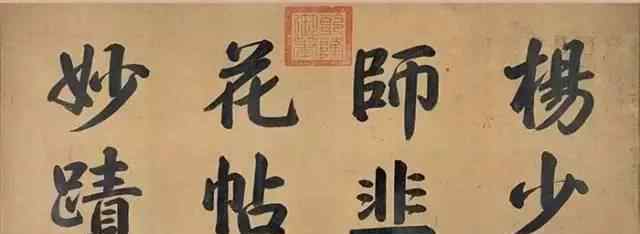 楊少
師韭
花帖
妙蹟